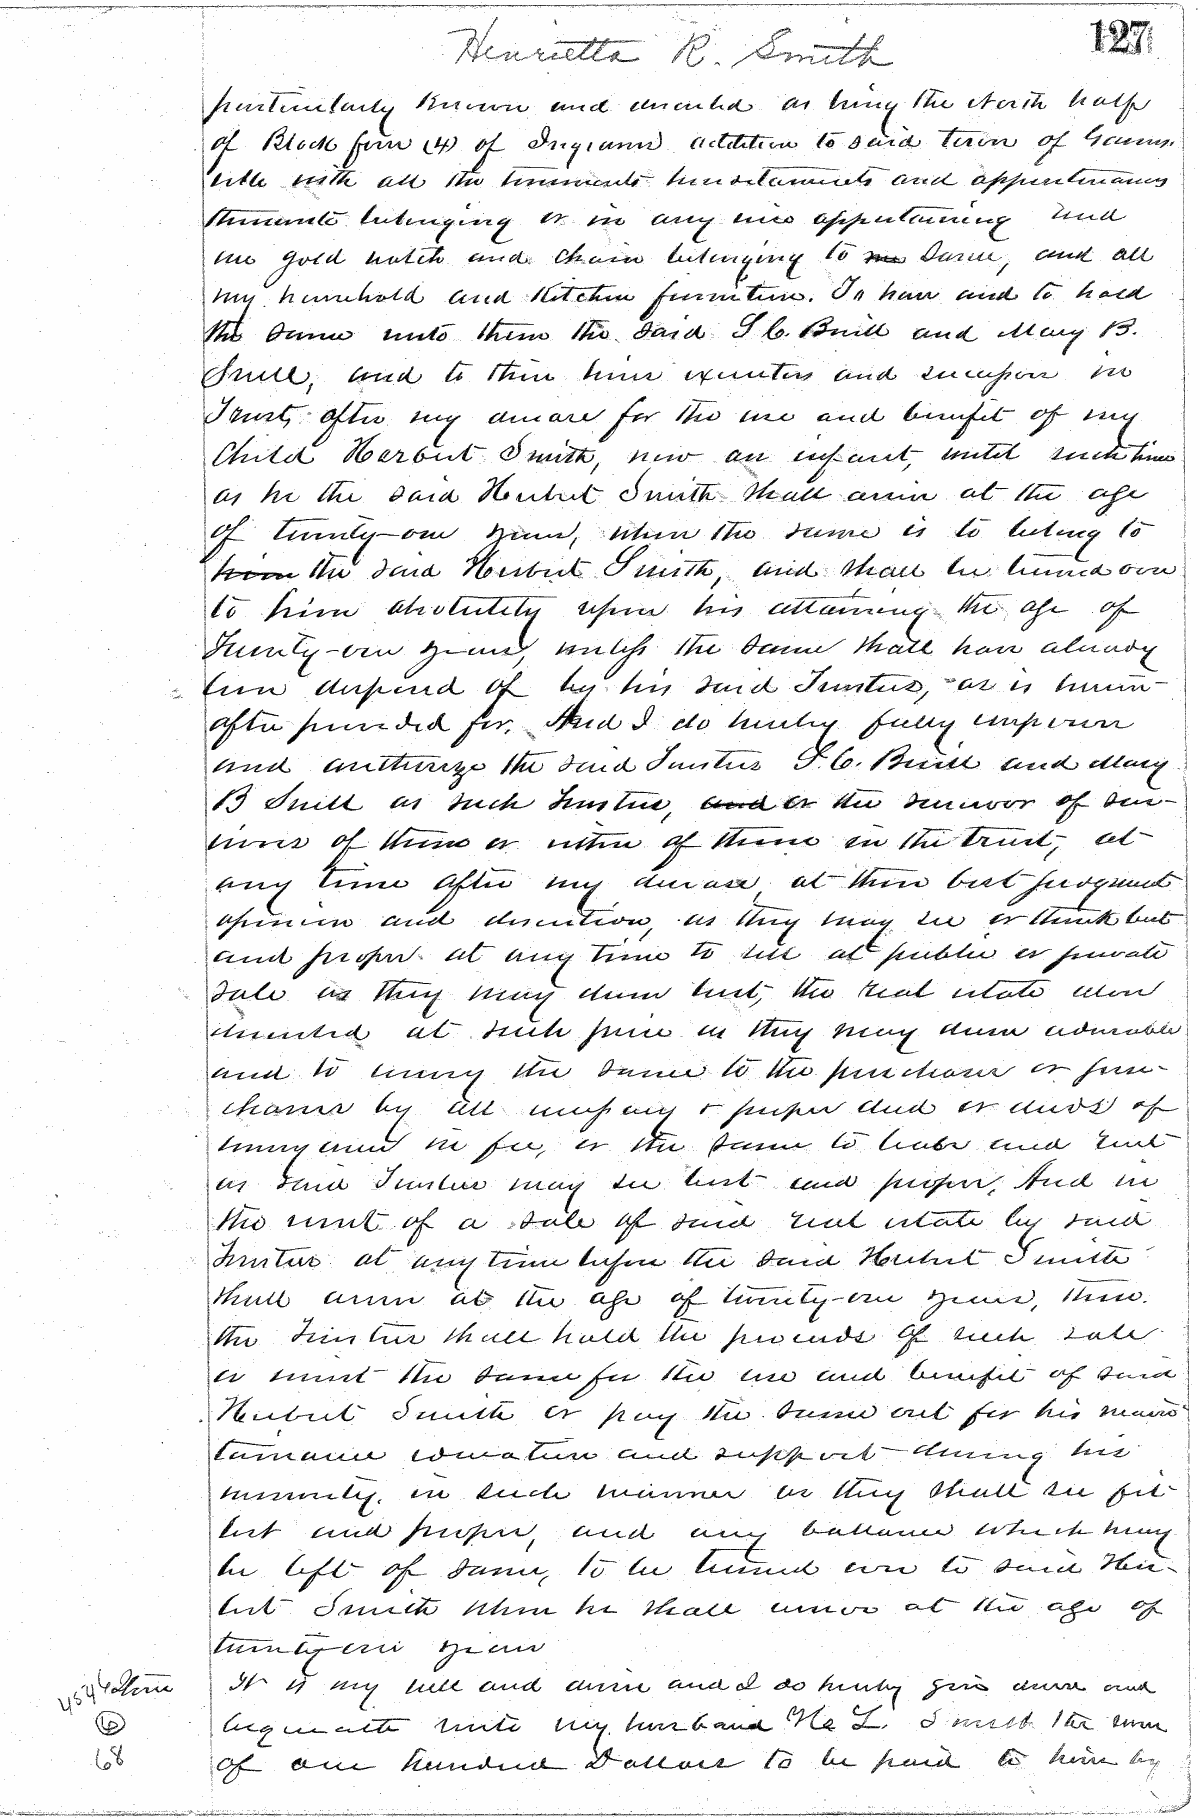 127
Henrietta R. Smith
particularly known and described as being the North half
of Block four (4) of addition to said town of Gaines-
ville with all the tenements hereditaments and appurtenances
thereunto belonging or in any wise appertaining and
one gold watch and chain belonging to me same, and all
my household and Kitchen furniture. To have and to hold
the same unto them the said and Mary B.
and to their heirs executors and successors in
Trust, after my decease for the use and benefit of my
Child Herbert Smith, now an infant, until such time
as he the said Herbert Smith shall arrive at the age
of twenty-one years, when the same is to belong to
him the said Herbert Smith, and shall be turned over
to him absolutely upon his attaining the age of
Twenty-one years, unless the same shall have already
been disposed of by his said Trustees, as is herein-
after provided for. And I do hereby fully empower
and authorize the said Trustees and Mary
B as such Trustees, and or the survivor of sur-
vivors of them or either of them in the trust, at
any time after my decease at their best judgment
opinion and discretion, as they may see or think best
and proper at any time to sell at public or private
sale as they may deem best, the real estate above
described at such price as they may deem advisable
and to convey the same to the purchaser or pur-
chasers by all necessary & proper deed or deeds of
conveyance in fee, or the same to lease and rent
as said Trustees may see best and proper, And in
the event of a sale of said real estate by said
Trustees at any time before the said Herbert Smith
shall arrive at the age of twenty-one years, then
the Trustees shall hold the proceeds of such sale
or invest the same for the use and benefit of said
Herbert Smith or pay the same out for his main-
tainance education and support during his
minority, in such manner as they shall see fit
best and proper, and any ballance which may
be left of same, to be turned over to said Her-
bert Smith when he shall arrive at the age of
twenty-one years
It is my will and desire and I do hereby give devise and
bequeath unto my husband Smith the sum
of one hundred Dollars to be paid to him by
6
68